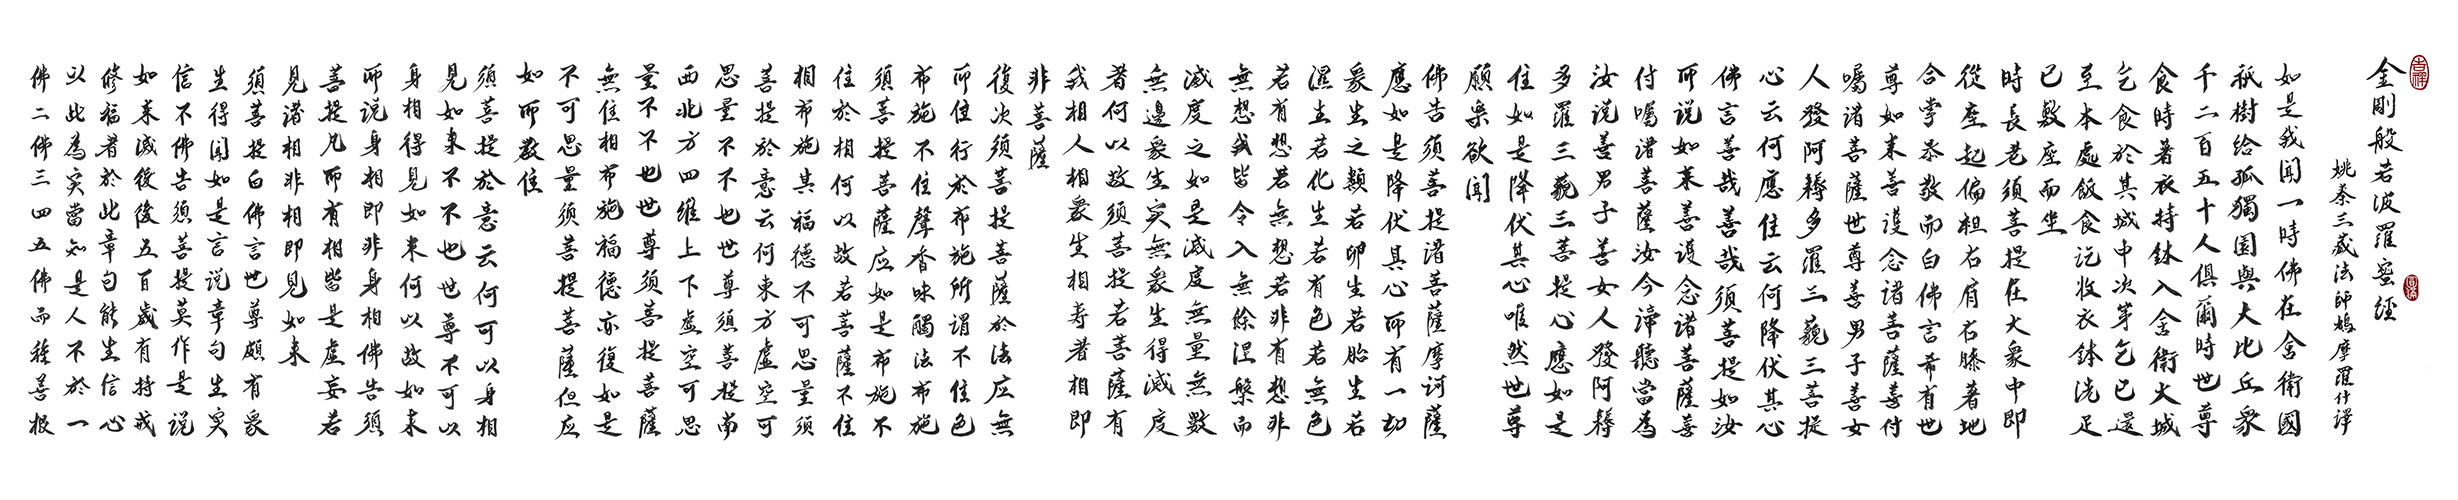 金剛般若波羅蜜經
姚秦三藏法師鳩摩羅什譯
如是我聞一時佛在舍衛國
祇樹給孤獨園與大比丘衆
千二百五十人俱爾時世尊
食時著衣持鉢入舍衛大城
乞食於其城中次第乞已還
至本處飯食訖收衣鉢洗足
已敷座而坐
時長老須菩提在大衆中即
從座起偏袒右肩右膝著地
合掌恭敬而白佛言希有世
尊如来善護念諸菩薩善付
囑諸菩薩世尊善男子善女
人發阿耨多羅三藐三菩提
心云何應住云何降伏其心
佛言善哉善哉須菩提如汝
所説如来善護念諸菩薩善
付囑諸菩薩汝今諦聽當為
汝説善男子善女人發阿耨
多羅三藐三菩提心應如是
住如是降伏其心唯然世尊
願樂欲聞
佛告須菩提諸菩薩摩訶薩
應如是降伏其心所有一切
衆生之類若卵生若胎生若
濕生若化生若有色若無色
若有想若無想若非有想非
無想我皆令入無餘涅槃而
滅度之如是滅度無量無數
無邊衆生实無衆生得滅度
者何以故須菩提若菩薩有
我相人相衆生相寿者相即
非菩薩
復次須菩提菩薩於法应無
所住行於布施所謂不住色
布施不住聲香味觸法布施
須菩提菩薩应如是布施不
住於相何以故若菩薩不住
相布施其福德不可思量須
菩提於意云何東方虛空可
思量不不也世尊須菩提南
西北方四維上下虛空可思
量不不也世尊須菩提菩薩
無住相布施福德亦復如是
不可思量須菩提菩薩但应
如所教住
須菩提於意云何可以身相
見如来不不也世尊不可以
身相得見如来何以故如来
所説身相即非身相佛告須
菩提凡所有相皆是虛妄若
見諸相非相即見如来
須菩提白佛言世尊頗有衆
生得聞如是言説章句生实
信不佛告須菩提莫作是説
如来滅後後五百歲有持戒
修福者於此章句能生信心
以此為实當知是人不於一
佛二佛三四五佛而種善根